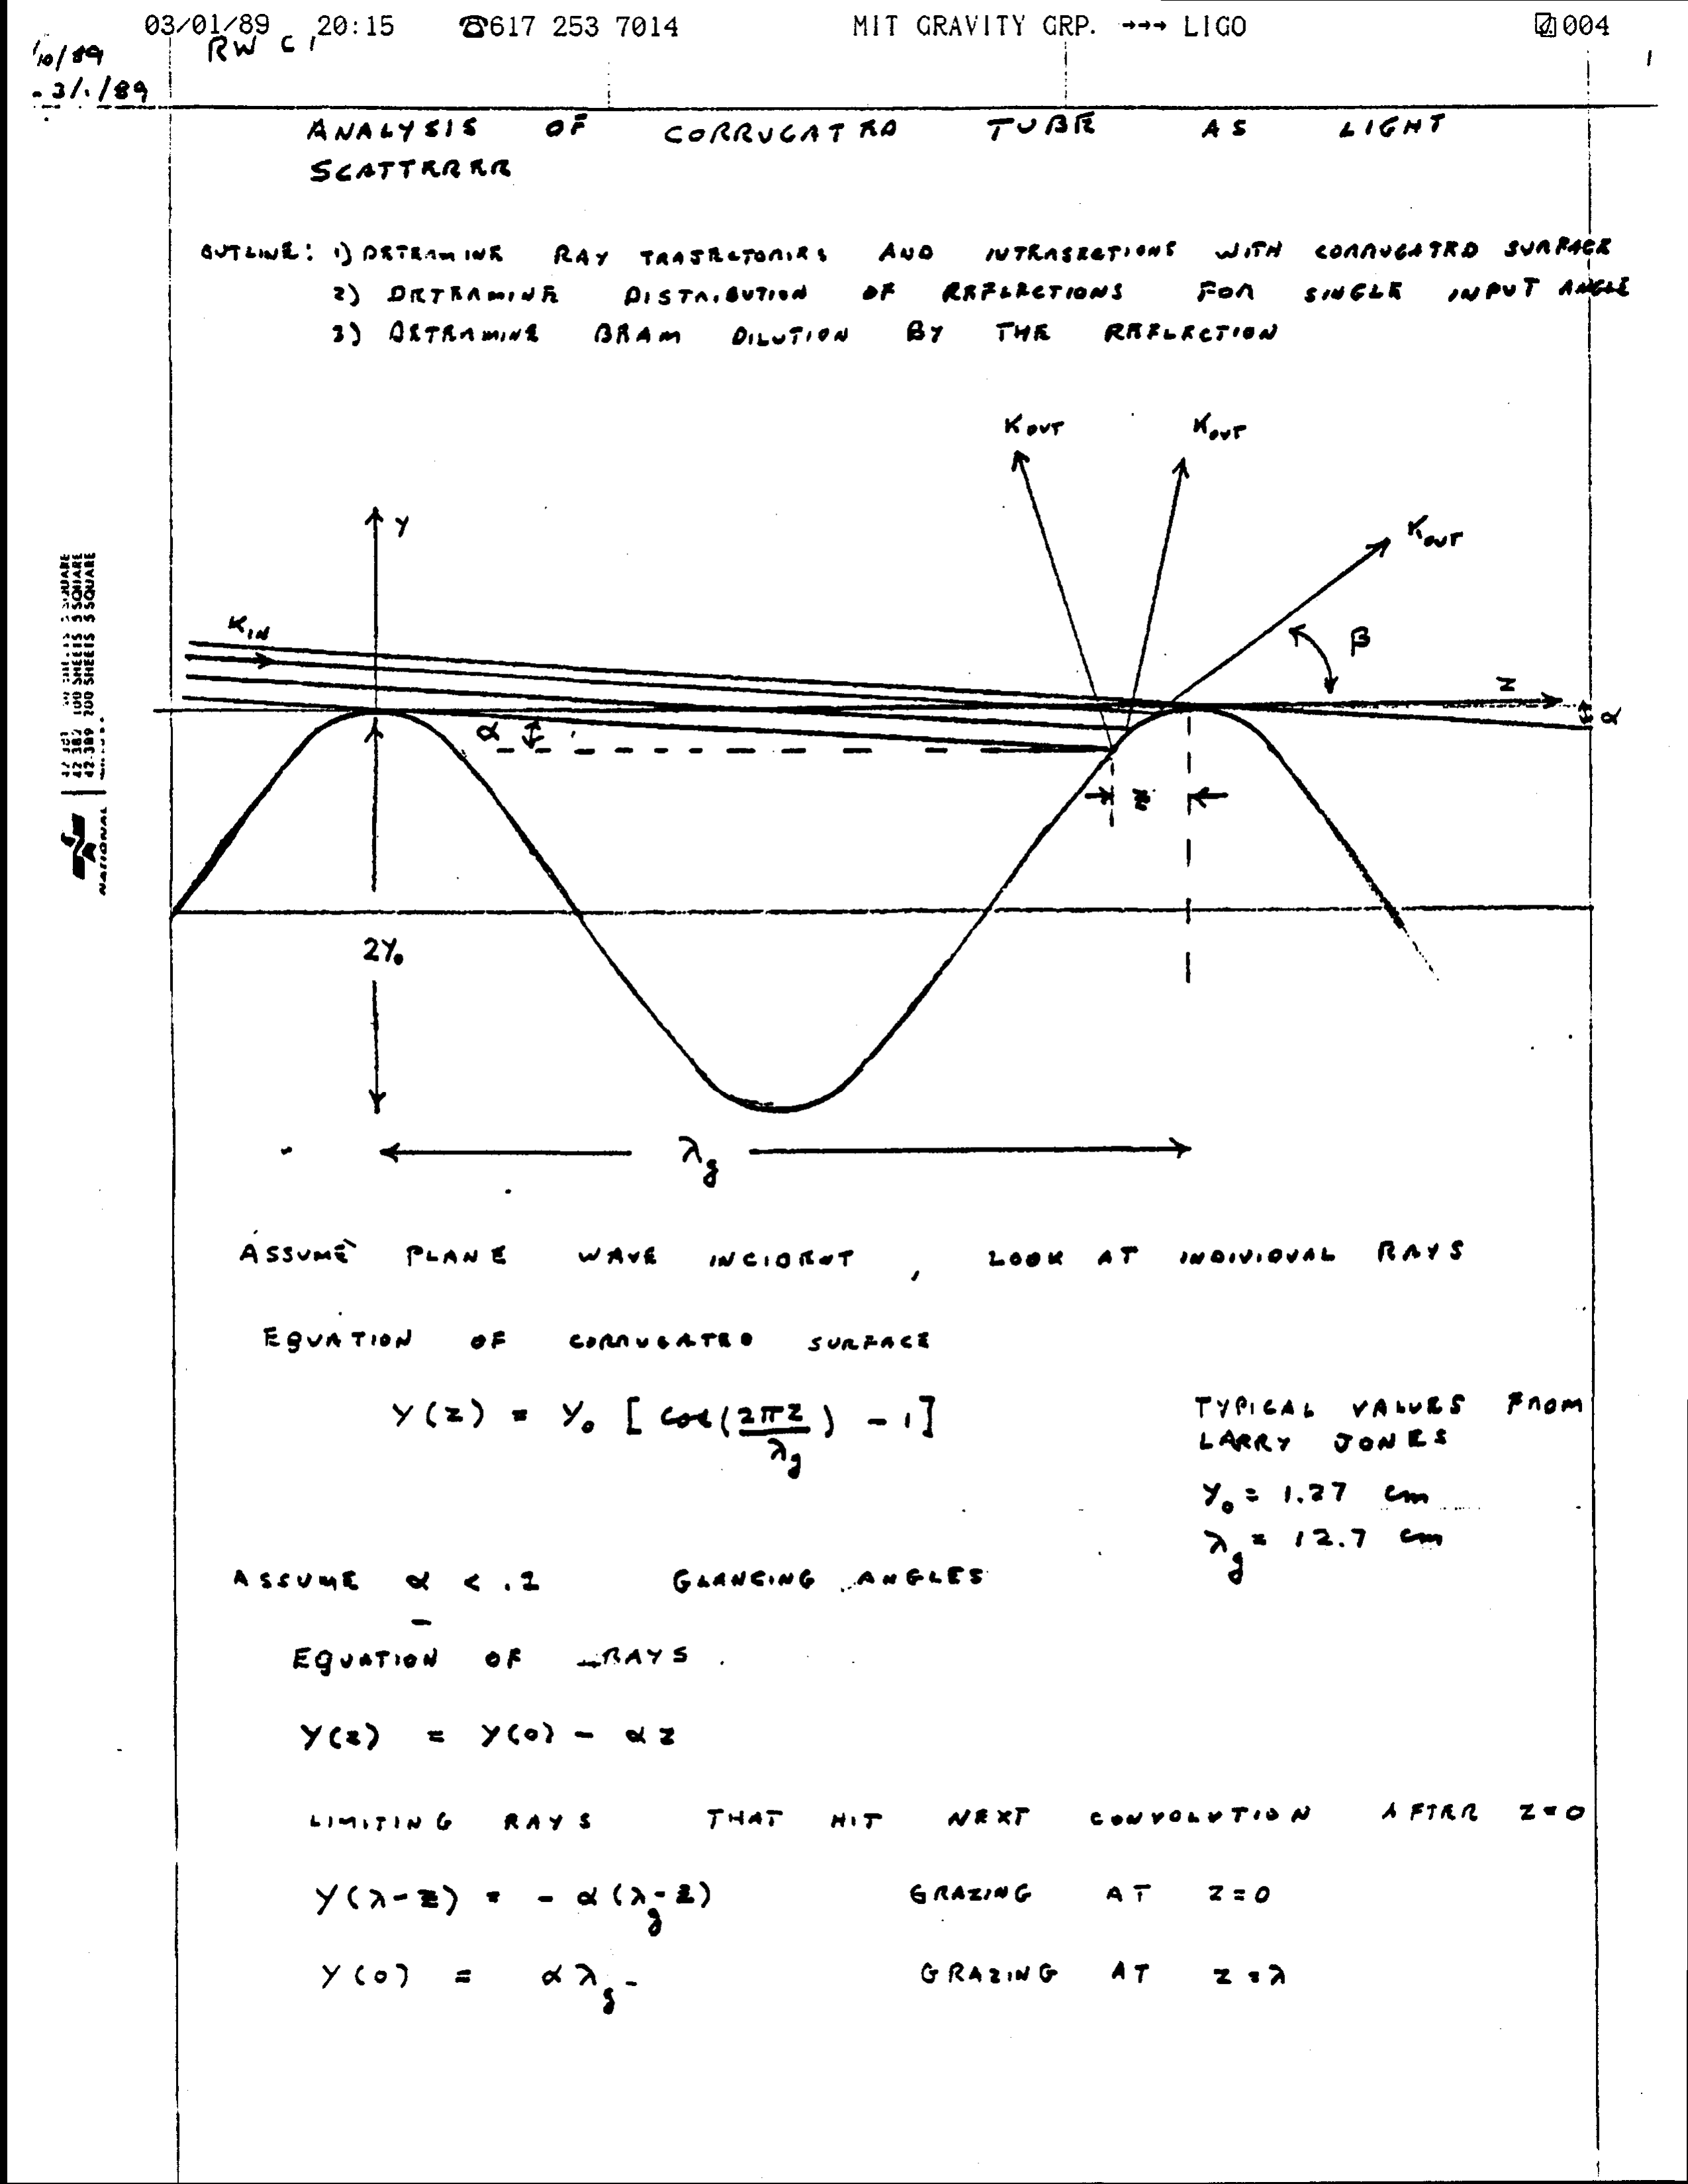 03/01/89 20:15 ☎617 253 7014 MIT GRAVITY GRP. →→→ LIGO 004
RW C
10/89
- 3/1/89
1
ANALYSIS OF CORRUGATED TUBE AS LIGHT
SCATTERER
OUTLINE: 1) DETERMINE RAY TRAJECTORIES AND INTERSECTIONS WITH CORRUGATED SURFACE
2) DETERMINE DISTRIBUTION OF REFLECTIONS FOR SINGLE INPUT ANGLE
3) DETERMINE BEAM DILUTION BY THE REFLECTION
K_OUT K_OUT
Y
K_OUT
K_IN
β
Z
α
α
z
2Y₀
λ_g
42.382 100 SHEETS 5 SQUARE
42.389 200 SHEETS 5 SQUARE
NATIONAL
ASSUME PLANE WAVE INCIDENT, LOOK AT INDIVIDUAL RAYS
EQUATION OF CORRUGATED SURFACE
Y(z) = Y₀ [cos(2πz/λ_g) - 1]
TYPICAL VALUES FROM
LARRY JONES
Y₀ = 1.27 cm
λ_g = 12.7 cm
ASSUME α < .2 GLANCING ANGLES
EQUATION OF RAYS
Y(z) = Y(0) - αz
LIMITING RAYS THAT HIT NEXT CONVOLUTION AFTER Z=0
Y(λ-z) = -α(λ_g-z) GRAZING AT Z=0
Y(0) = αλ_g GRAZING AT Z=λ